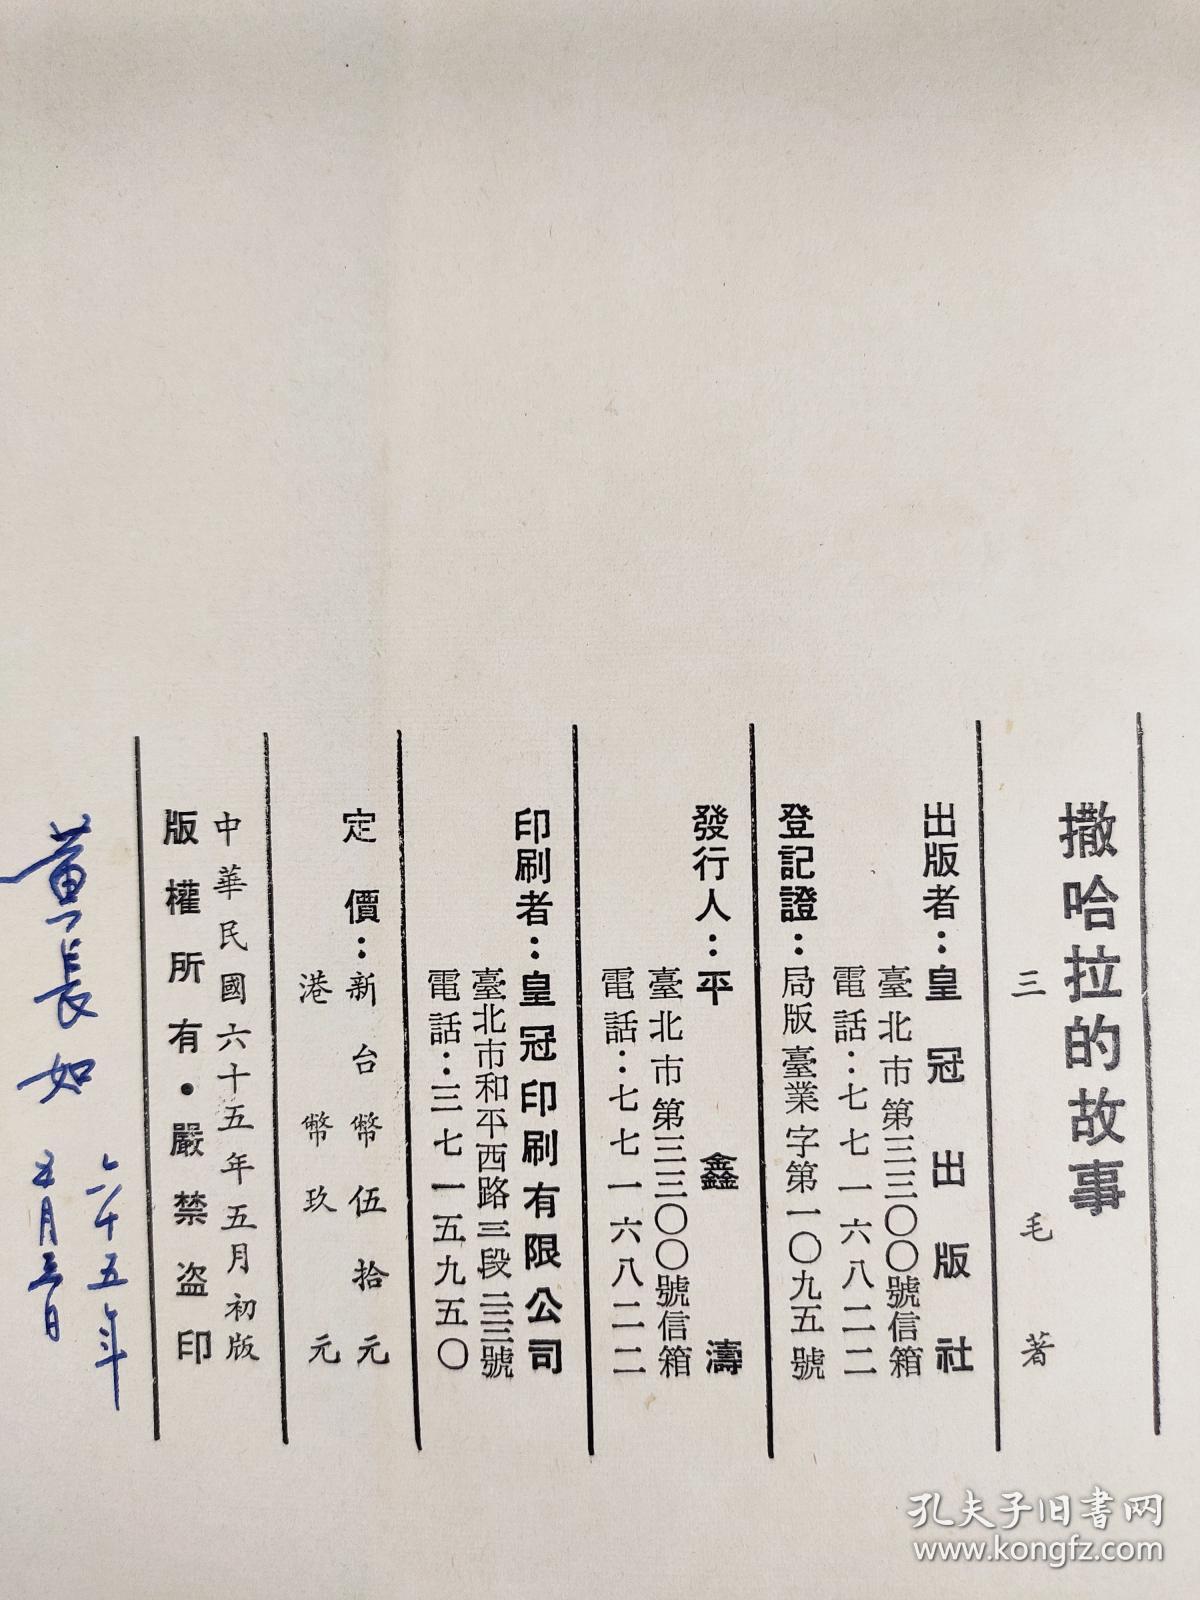 撒哈拉的故事
三毛著
出版者：皇冠出版社
臺北市第三三〇〇號信箱
電話：七七一六八二二
登記證：局版臺業字第一〇九五號
發行人：平鑫濤
臺北市第三三〇〇號信箱
電話：七七一六八二二
印刷者：皇冠印刷有限公司
臺北市和平西路三段二三三號
電話：三七一五九五〇
定價：新台幣伍拾元
港幣玖元
中華民國六十五年五月初版
版權所有・嚴禁盜印
六十五年
五月三日
孔夫子旧书网
www.kongfz.com